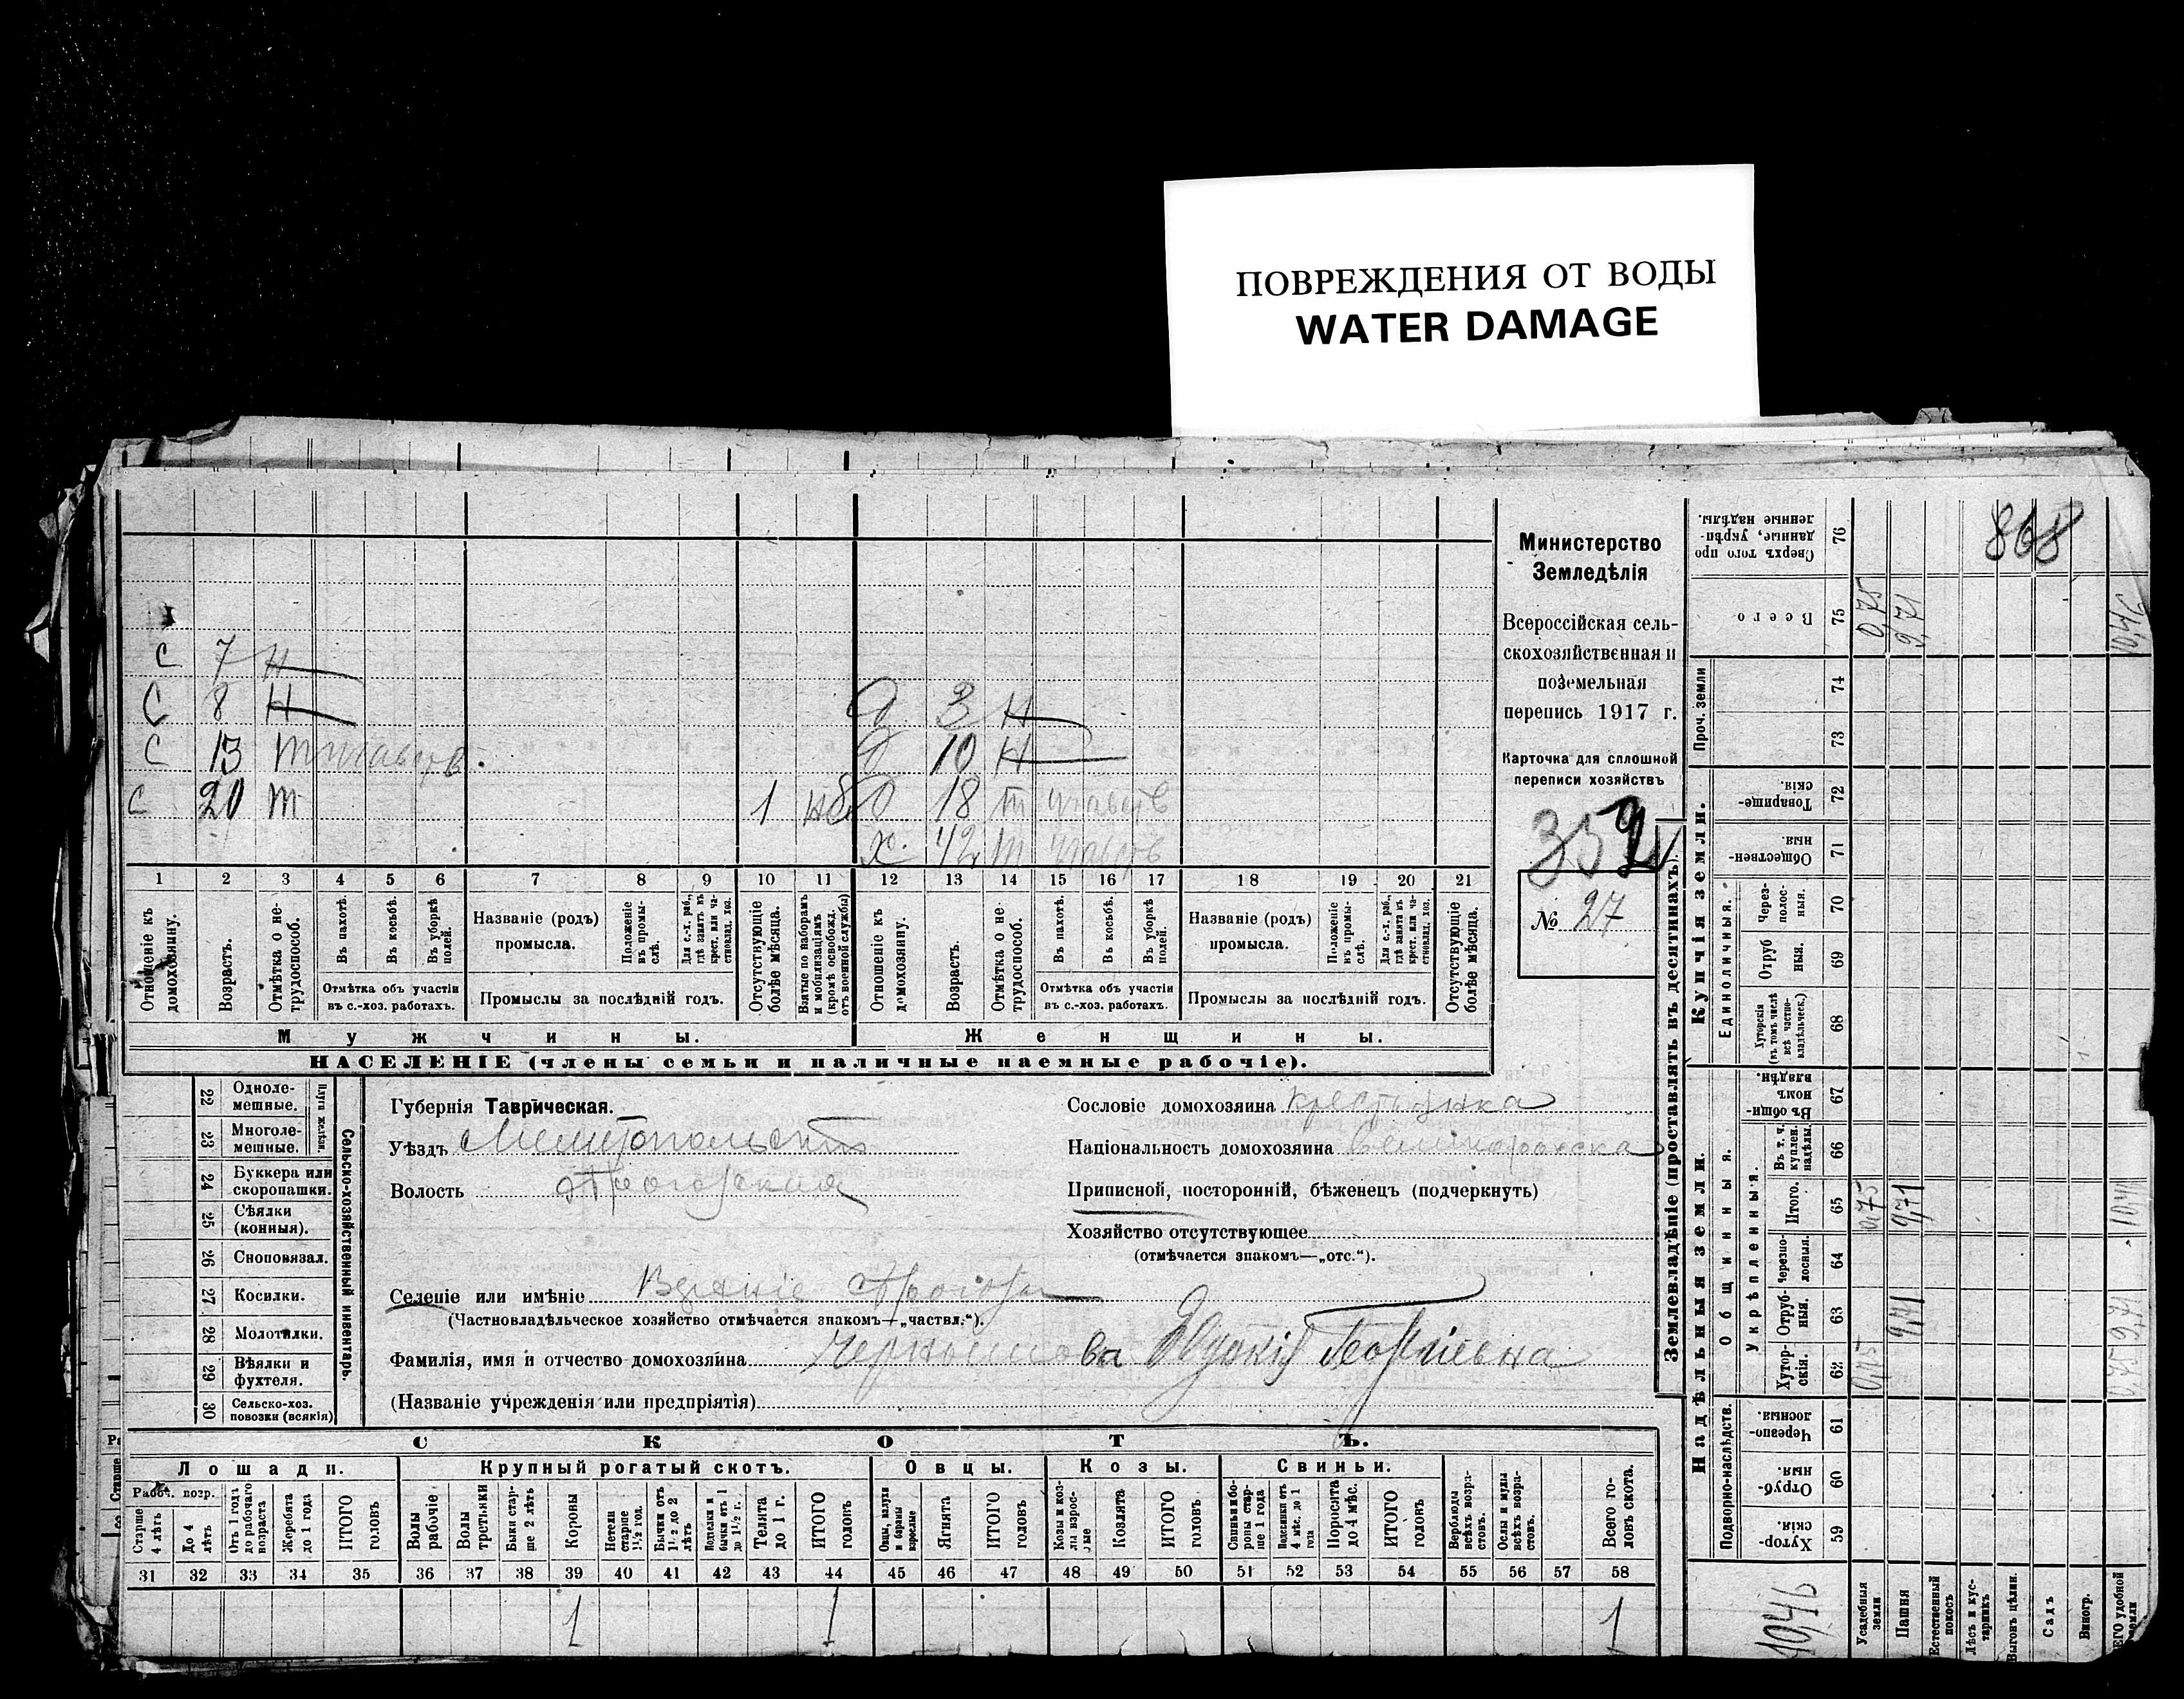 ПОВРЕЖДЕНИЯ ОТ ВОДЫ
WATER DAMAGE
868
Министерство
Земледѣлія
Всероссійская сель-
скохозяйственная и
поземельная
перепись 1917 г.
Карточка для сплошной
переписи хозяйствъ
352
№ 27
С 7 Н
С 8 Н Д 3 Н
С 13 Д 10 Н
С 20 т 1 Д 18 т
х. 42 т
1 2 3 4 5 6 7 8 9 10 11 12 13 14 15 16 17 18 19 20 21
Отношеніе къ домохозяину.
Возрастъ.
Отмѣтка о не-трудоспособ.
Въ пахотѣ.
Въ косьбѣ.
Въ уборкѣ полей.
Отмѣтка объ участіи
въ с.-хоз. работахъ.
Названіе (родъ)
промысла.
Положеніе въ промы-слѣ.
Для с.-х. раб., гдѣ занятъ въ крест. или ча-стновлад. хоз.
Промыслы за послѣдній годъ.
Отсутствующіе болѣе мѣсяца.
Взятые по наборамъ и мобилизаціямъ (кромѣ освобожд. отъ военной службы)
Отношеніе къ домохозяину.
Возрастъ.
Отмѣтка о не трудоспособ.
Въ пахотѣ.
Въ косьбѣ.
Въ уборкѣ полей.
Отмѣтка объ участіи
въ с.-хоз. работахъ.
Названіе (родъ)
промысла.
Положеніе въ промы-слѣ.
Для с.-х. раб., гдѣ занятъ въ крест. или ча-стновлад. хоз.
Промыслы за послѣдній годъ.
Отсутствующіе болѣе мѣсяца.
Мужчины. Женщины.
НАСЕЛЕНІЕ (члены семьи и наличные наемные рабочіе).
Сельско-хозяйственный инвентарь.
22 Одноле-мешные.
23 Многоле-мешные.
24 Буккера или скоропашки.
25 Сѣялки (конныя).
26 Сноповязал.
27 Косилки.
28 Молотилки.
29 Вѣялки и фухтеля.
30 Сельско-хоз. повозки (всякія)
Губернія Таврическая.
Уѣздъ Мелитопольскій
Волость
Селеніе или имѣніе
(Частновладѣльческое хозяйство отмѣчается знакомъ—„частвл.“).
Фамилія, имя и отчество домохозяина Евдокія Георгіевна
(Названіе учрежденія или предпріятія)
Сословіе домохозяина крестьянка
Національность домохозяина великоросска
Приписной, посторонній, бѣженецъ (подчеркнуть)
Хозяйство отсутствующее
(отмѣчается знакомъ—„отс.“).
СКОТЪ.
Лошади. Крупный рогатый скотъ. Овцы. Козы. Свиньи.
Рабоч. возр.
Старше 4 лѣтъ
До 4 лѣтъ
Отъ 1 года до рабочаго возраста
Жеребята до 1 года
ИТОГО головъ
Волы рабочіе
Волы третьяки
Быки стар-ше 2 лѣтъ
Коровы
Нетели старше 1½ год.
Бычки отъ 1½ до 2 лѣтъ
Телята до 1 г.
ИТОГО головъ
Овцы, валухи и бараны взрослые
Ягнята
ИТОГО головъ
Козы и коз-лы взрос-лые
Козлята
ИТОГО головъ
Свиньи и бо-ровы стар-ше 1 года
Подсвинки отъ 4 мѣс. до 1 года
Поросята до 4 мѣс.
ИТОГО головъ
Верблюды всѣхъ возра-стовъ.
Ослы и мулы всѣхъ возра-стовъ.
Всего го-ловъ скота.
31 32 33 34 35 36 37 38 39 40 41 42 43 44 45 46 47 48 49 50 51 52 53 54 55 56 57 58
1 1 1
Землевладѣніе (проставлять въ десятинахъ).
Надѣльныя земли. Купчія земли. Проч. земли
Подворно-наслѣдств.
Общинныя.
Укрѣпленныя.
Единоличныя.
Хутор-скія. 59
Отруб-ныя 60
Черезпо-лосныя. 61
Хутор-скія. 62
Отруб-ныя. 63
Черезпо-лосныя. 64
Итого. 65
Въ т. ч. куплен. надѣлы. 66
Въ общи-нномъ владѣн. 67
Хуторскія (въ томъ числѣ всѣ частно-владѣльческ.) 68
Отруб ныя. 69
Через-полос-ныя. 70
Обществен-ныя 71
Товарище-скія. 72
73
74
Всего 75
Сверхъ того про данные, укрѣп-ленные надѣлы. 76
Усадебныя земли 0,75 0,75 0,75
Пашня 9,71 9,71 9,71
Естественный покосъ
Лѣсъ и кус-тарникъ
Выгонъ цѣлин.
Садъ
Виногр.
0,75 9,71 10,46
10,46